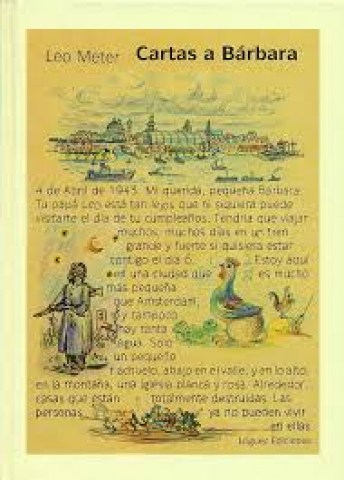 Leo Meter Cartas a Bárbara
4 de Abril de 1943. Mi querida, pequeña Bárbara:
Tu papá Leo está tan lejos que ni siquiera puede
visitarte el día de tu cumpleaños. Tendría que viajar
muchos, muchos días en un tren
grande y fuerte si quisiera estar
contigo el día 6. Estoy aquí
en una ciudad que es mucho
más pequeña
que Amsterdam,
y tampoco
hay tanta
agua. Sólo
un pequeño
riachuelo, abajo en el valle, y en lo alto,
en la montaña, una iglesia blanca y rosa. Alrededor,
casas que están totalmente destruidas. Las
personas ya no pueden vivir
en ellas
Lóguez Ediciones